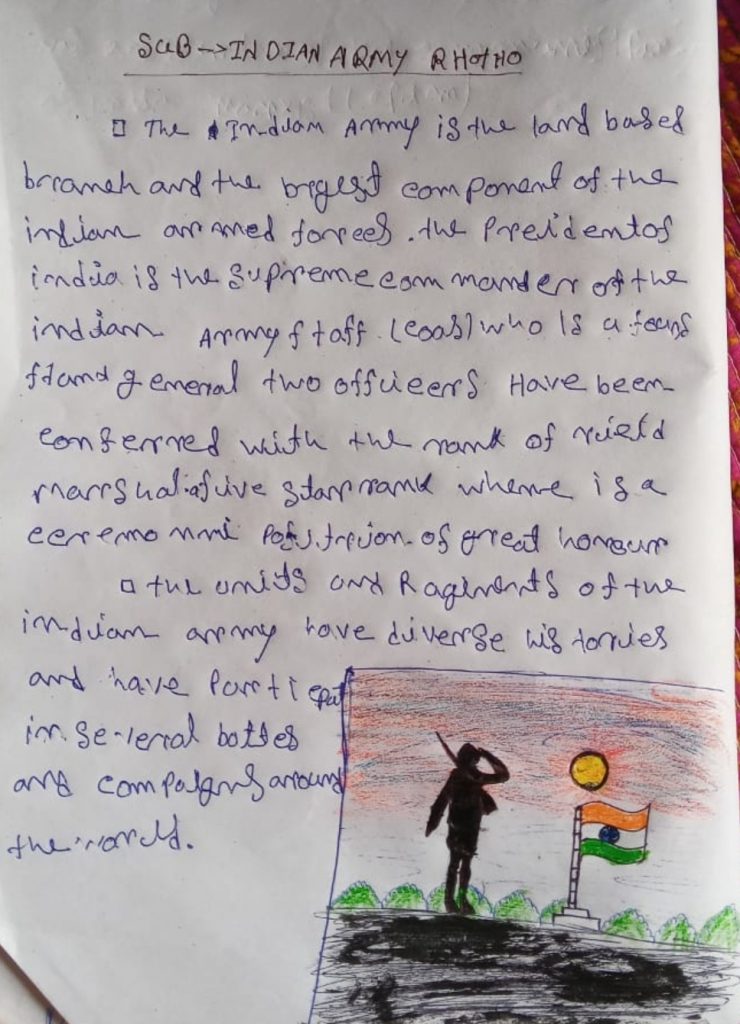 SUB → INDIAN ARMY RHOTHO
The Indian Army is the land based
branch and the bigest component of the
indian armed forces. the President of
india is the Supreme commander of the
indian Army staff (coas) who is a
general two officeers Have been
conferred with the rank of
marshal a five star rank is a
of great honour
the units and Ragiments of the
indian army have diverse histories
and have Particpat
in Several battles
and Compaigns around
the world.